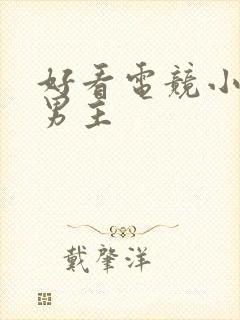 好看电竞小
男主
戴肇洋